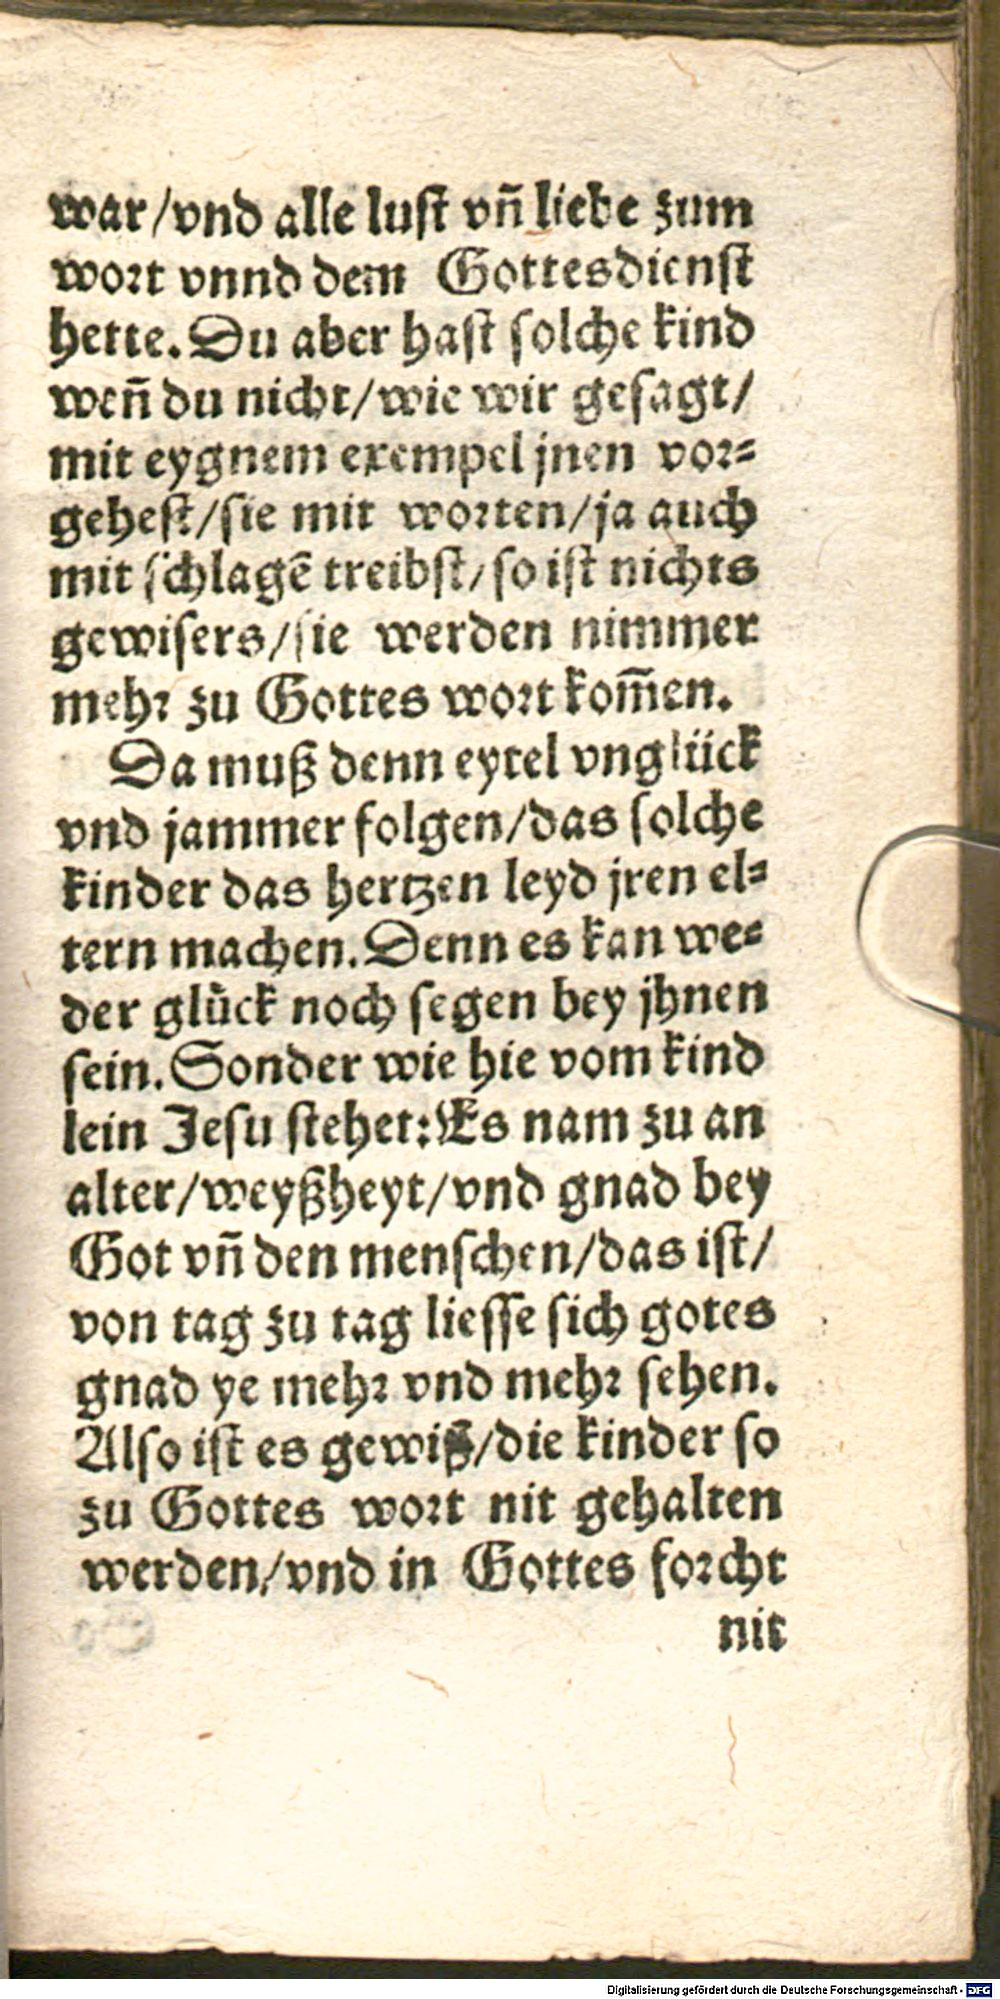 war/vnd alle lust vñ liebe zum
wort vnnd dem Gottesdienst
hette. Du aber hast solche kind
weñ du nicht/wie wir gesagt/
mit eygnem exempel jnen vor-
gehest/sie mit worten/ja auch
mit schlagē treibst/so ist nichts
gewisers/sie werden nimmer
mehr zu Gottes wort kom̄en.
Da muß denn eytel vnglück
vnd jammer folgen/das solche
kinder das hertzen leyd jren el-
tern machen. Denn es kan we-
der glück noch segen bey jhnen
sein. Sonder wie hie vom kind
lein Jesu stehet: Es nam zu an
alter/weyßheyt/vnd gnad bey
Got vñ den menschen/das ist/
von tag zu tag liesse sich gotes
gnad ye mehr vnd mehr sehen.
Also ist es gewiß/die kinder so
zu Gottes wort nit gehalten
werden/vnd in Gottes forcht
nit
Digitalisierung gefördert durch die Deutsche Forschungsgemeinschaft - DFG